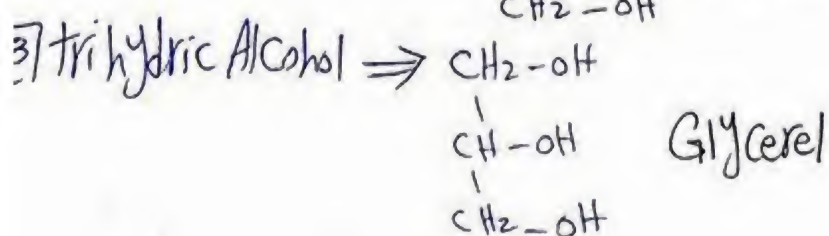 CH2 - OH
3] trihydric Alcohol ⇒ CH2 - OH
CH - OH Glycerel
CH2 - OH